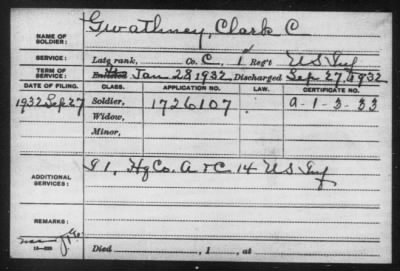 NAME OF SOLDIER: Gwathney, Clark C
SERVICE: Late rank, Co. C, 1 Reg't US Inf
TERM OF SERVICE: Enlisted Jan 28, 1932, Discharged Sep. 27, 1932
DATE OF FILING. CLASS. APPLICATION NO. LAW. CERTIFICATE NO.
1932 Sep 27 Soldier, 1726107 a-1-3-33
Widow,
Minor,
ADDITIONAL SERVICES: Hq Co. A & C 14 US Inf
REMARKS:
Died , 1 , at